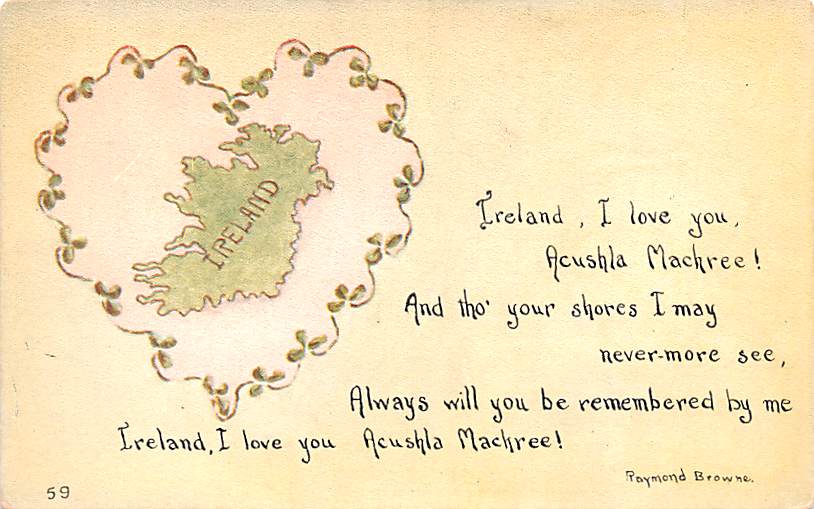 IRELAND
Ireland, I love you,
Acushla Machree!
And tho' your shores I may
never-more see,
Always will you be remembered by me
Ireland, I love you Acushla Machree!
Raymond Browne.
59